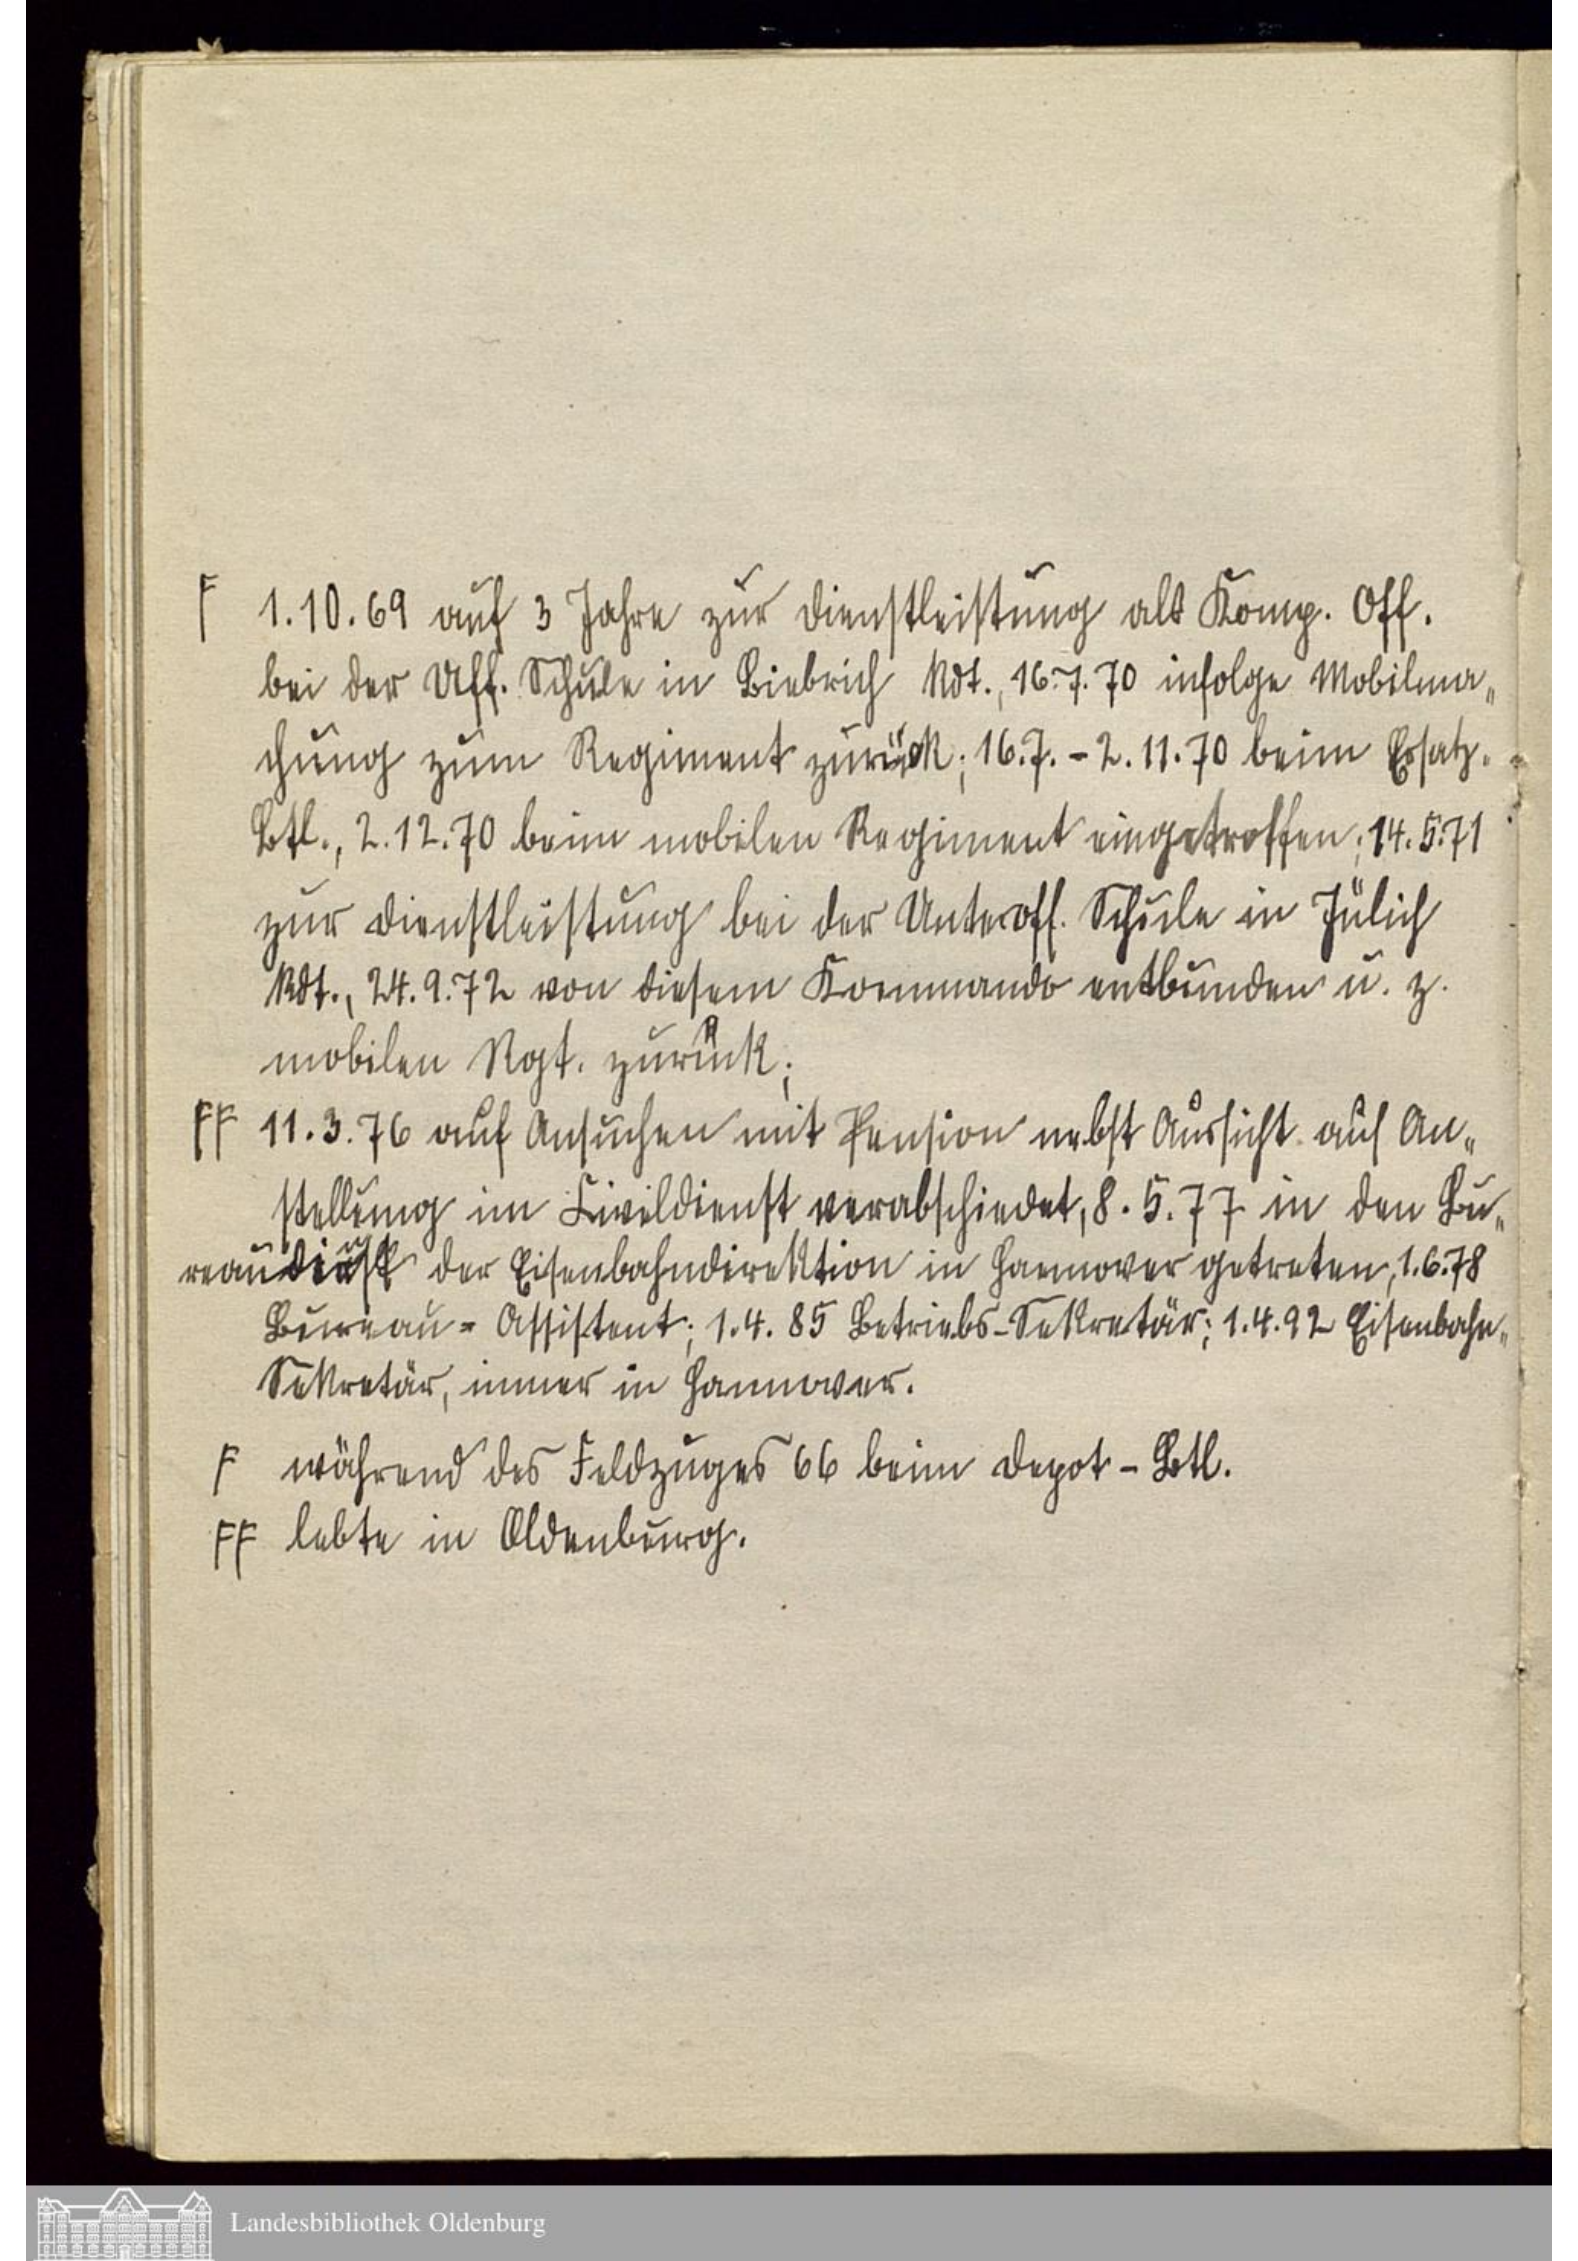 F 1.10.69 auf 3 Jahre zur Dienstleistung als Komp. Off.
bei der Uff. Schule in Biebrich kdt., 16.7.70 infolge Mobilma„
chung zum Regiment zurück; 16.7.-2.11.70 beim Ersatz-
Btl., 2.12.70 beim mobilen Regiment eingetroffen; 14.5.71
zur Dienstleistung bei der Unteroff. Schule in Jülich
kdt., 24.9.72 von diesem Kommando entbunden u. z.
mobilen Rgt. zurück;
FF 11.3.76 auf Ansuchen mit Pension nebst Aussicht auf An„
stellung im Civildienst verabschiedet, 8.5.77 in den Bu„
reaudienst der Eisenbahndirektion in Hannover getreten, 1.6.78
Bureau= Assistent; 1.4.85 Betriebs-Sekretär; 1.4.92 Eisenbahn„
Sekretär, immer in Hannover.
F während des Feldzuges 66 beim Depot-Btl.
FF lebte in Oldenburg.
Landesbibliothek Oldenburg